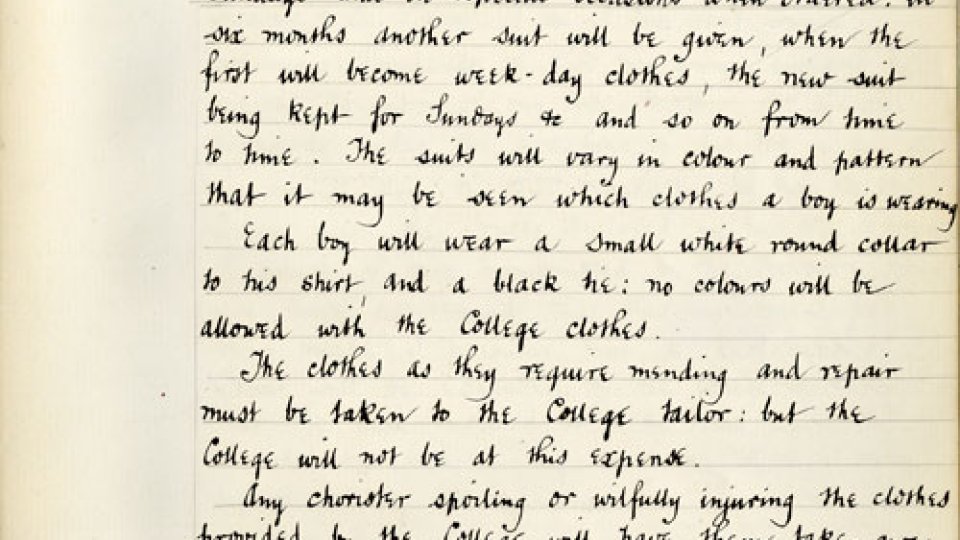 Sundays and on special occasions when ordered. In
six months another suit will be given, when the
first will become week-day clothes, the new suit
being kept for Sundays &c and so on from time
to time. The suits will vary in colour and pattern
that it may be seen which clothes a boy is wearing
Each boy will wear a small white round collar
to his shirt, and a black tie: no colours will be
allowed with the College clothes.
The clothes as they require mending and repair
must be taken to the College tailor: but the
College will not be at this expense.
Any chorister spoiling or wilfully injuring the clothes
provided by the College will have them